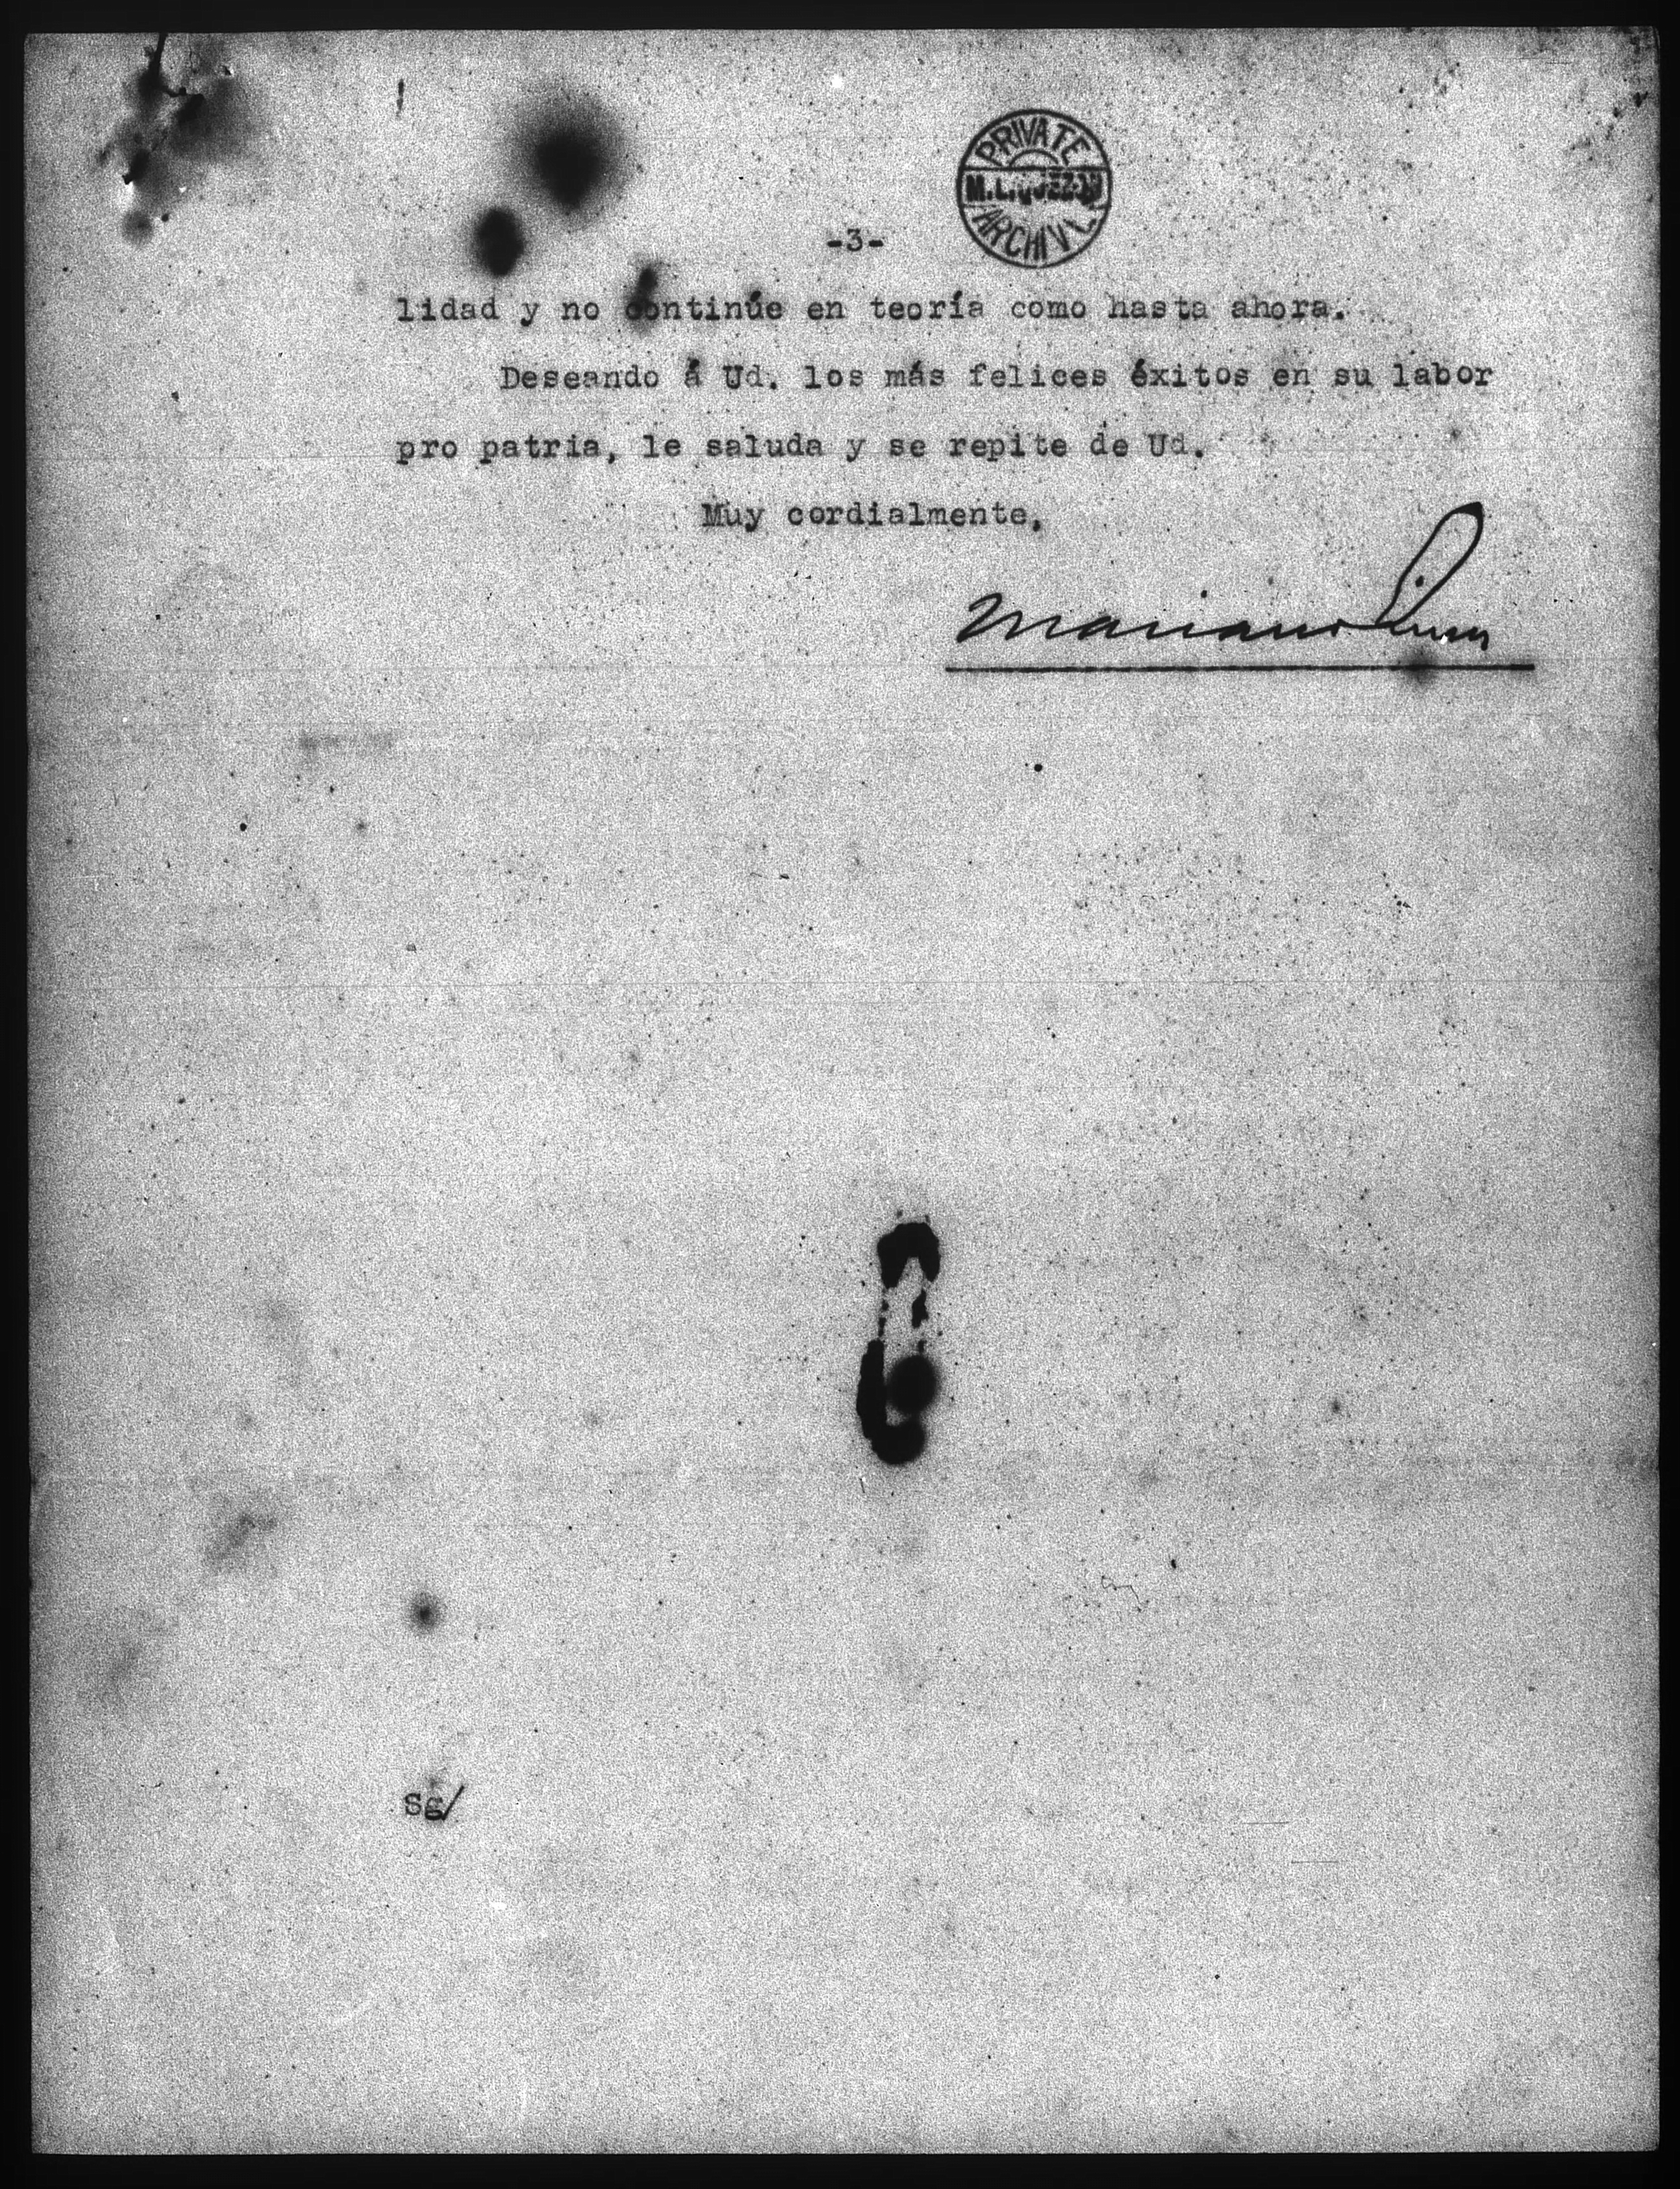 PRIVATE
M. L. QUEZON
ARCHIVE
-3-
lidad y no continúe en teoría como hasta ahora.
Deseando á Ud. los más felices éxitos en su labor
pro patria, le saluda y se repite de Ud.
Muy cordialmente,
Mariano
Sg/